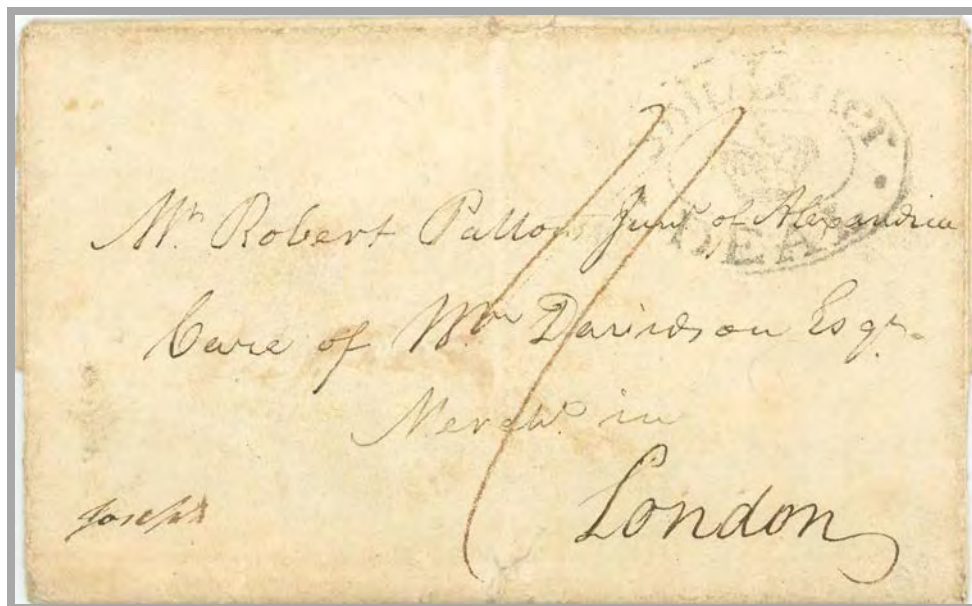 Ship Letter
DEAL
Mr. Robert Patton Junr. of Alexandria
Care of Wm Davidson Esqr.
Mercht. in
London
Joseph
11